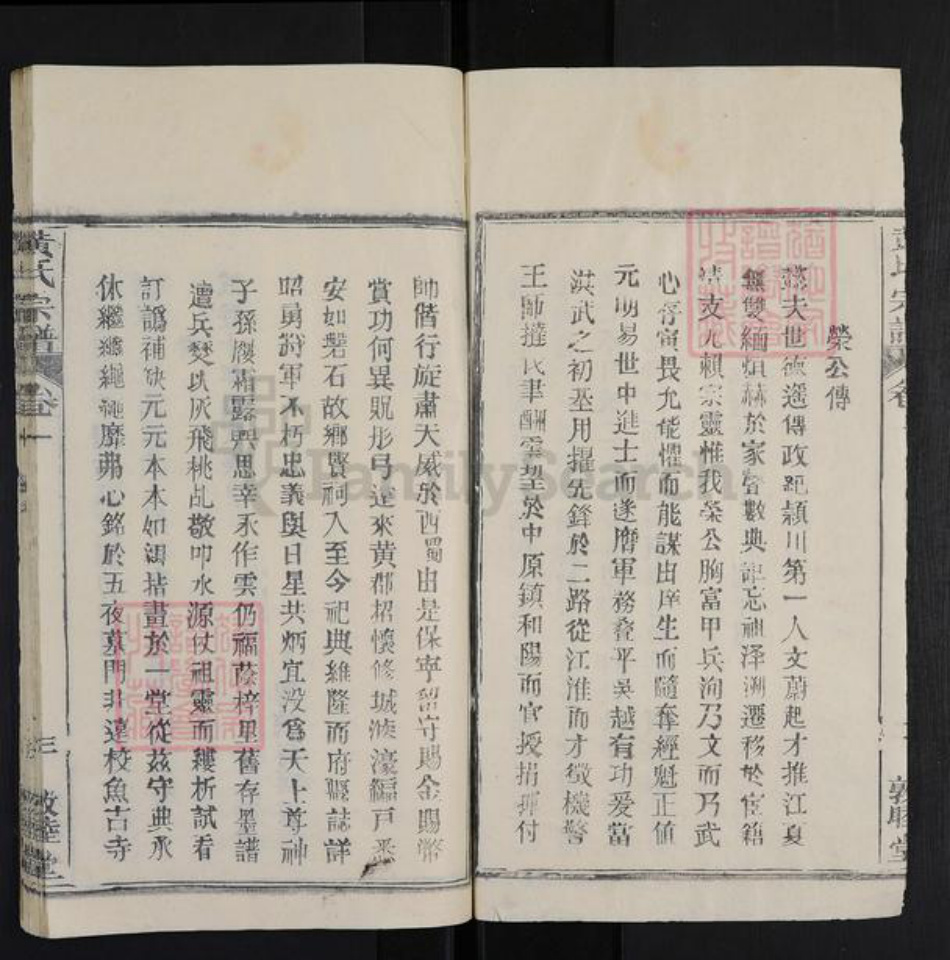 榮公傳
懿夫世德遙傳政跽穎川第一人文蔚起才推江夏
無雙緬烜赫於家聲數典詎忘祖泽溯遷移於宦籍
清支尤賴宗靈惟我榮公胸富甲兵洵乃文而乃武
心存寅畏允能懼而能謀由庠生而隨奪經魁正值
元明易世中進士而遂膺軍務叠平吳越有功爰當
洪武之初基用擢先鋒於二路從江淮而才徵機警
王師撻伐聿酬雲望於中原鎮和陽而官授指揮付
帥偕行旋肅天威於西蜀由是保寧留守賜金賜幣
賞功何異貺彤弓迨來黄郡招懷修城浚濠編戸悉
安如磐石故鄉賢祠入至今祀典維隆而府縣誌詳
昭勇將軍不朽忠義與日星共炳宜没爲天上尊神
子孫履霜露興思幸永作雲仍福蔭梓里舊存墨譜
遭兵燹以灰飛桃乩敬叩水源仗祖靈而縷析試看
訂譌補缺元元本本如溯指畫於一堂從茲守典承
休繼繼繩繩靡弗心銘於五夜慕門非遠校魚吉寺
黃氏宗譜
卷一
三
敦睦堂
黃氏宗譜
卷
敦睦堂
FamilySearch